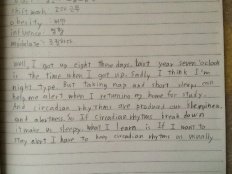 obesity : 비만
influence : 영향
modulate : 조절하다
Well, I got up eight these days. Last year seven o'clock
is the time when I got up. Sadly I think I'm
night type. But taking nap and short sleeps can
help me alert when I returning my home for study.
And circadian rhythms are produce our sleepiness
and alertness. So if circadian rhythms break down
it make us sleepy. What I learn is if I want to
stay alert I have to keep circadian rhythms as usually.